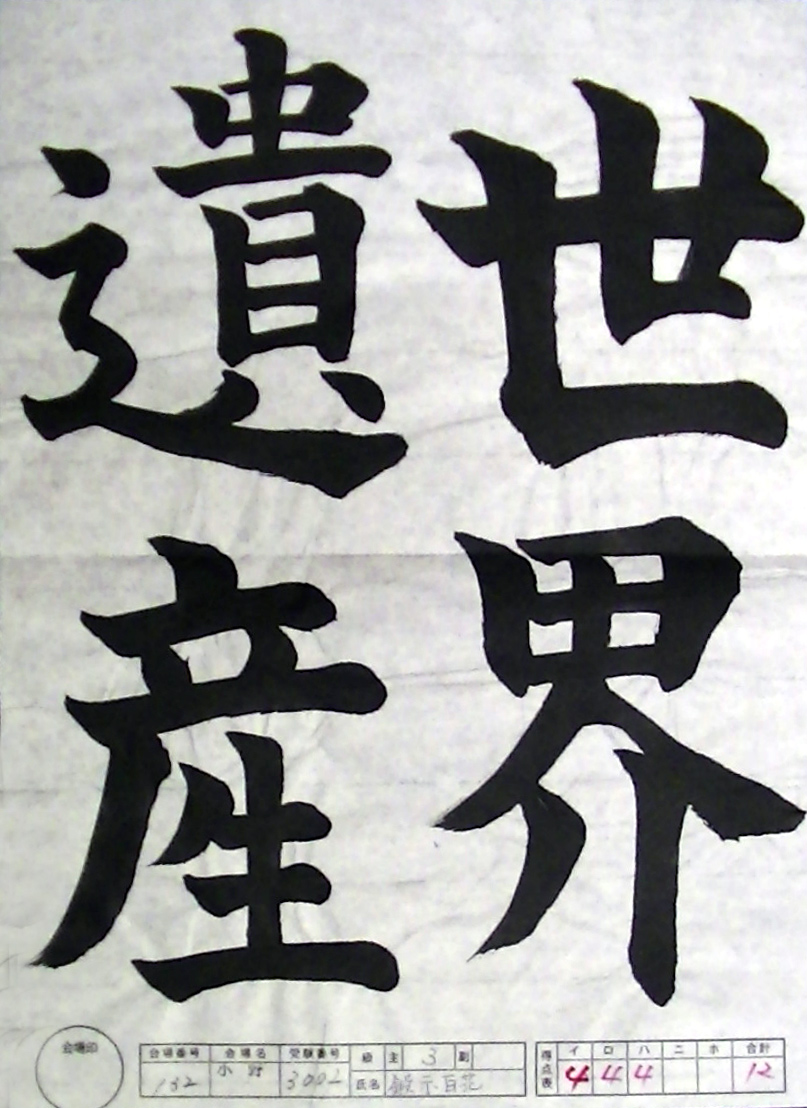 世界
遺産
会場印
会場番号 会場名 受験番号 級 主 3 副
132 小野 3002 氏名
得点表 イ ロ ハ ニ ホ 合計
4 4 4 12